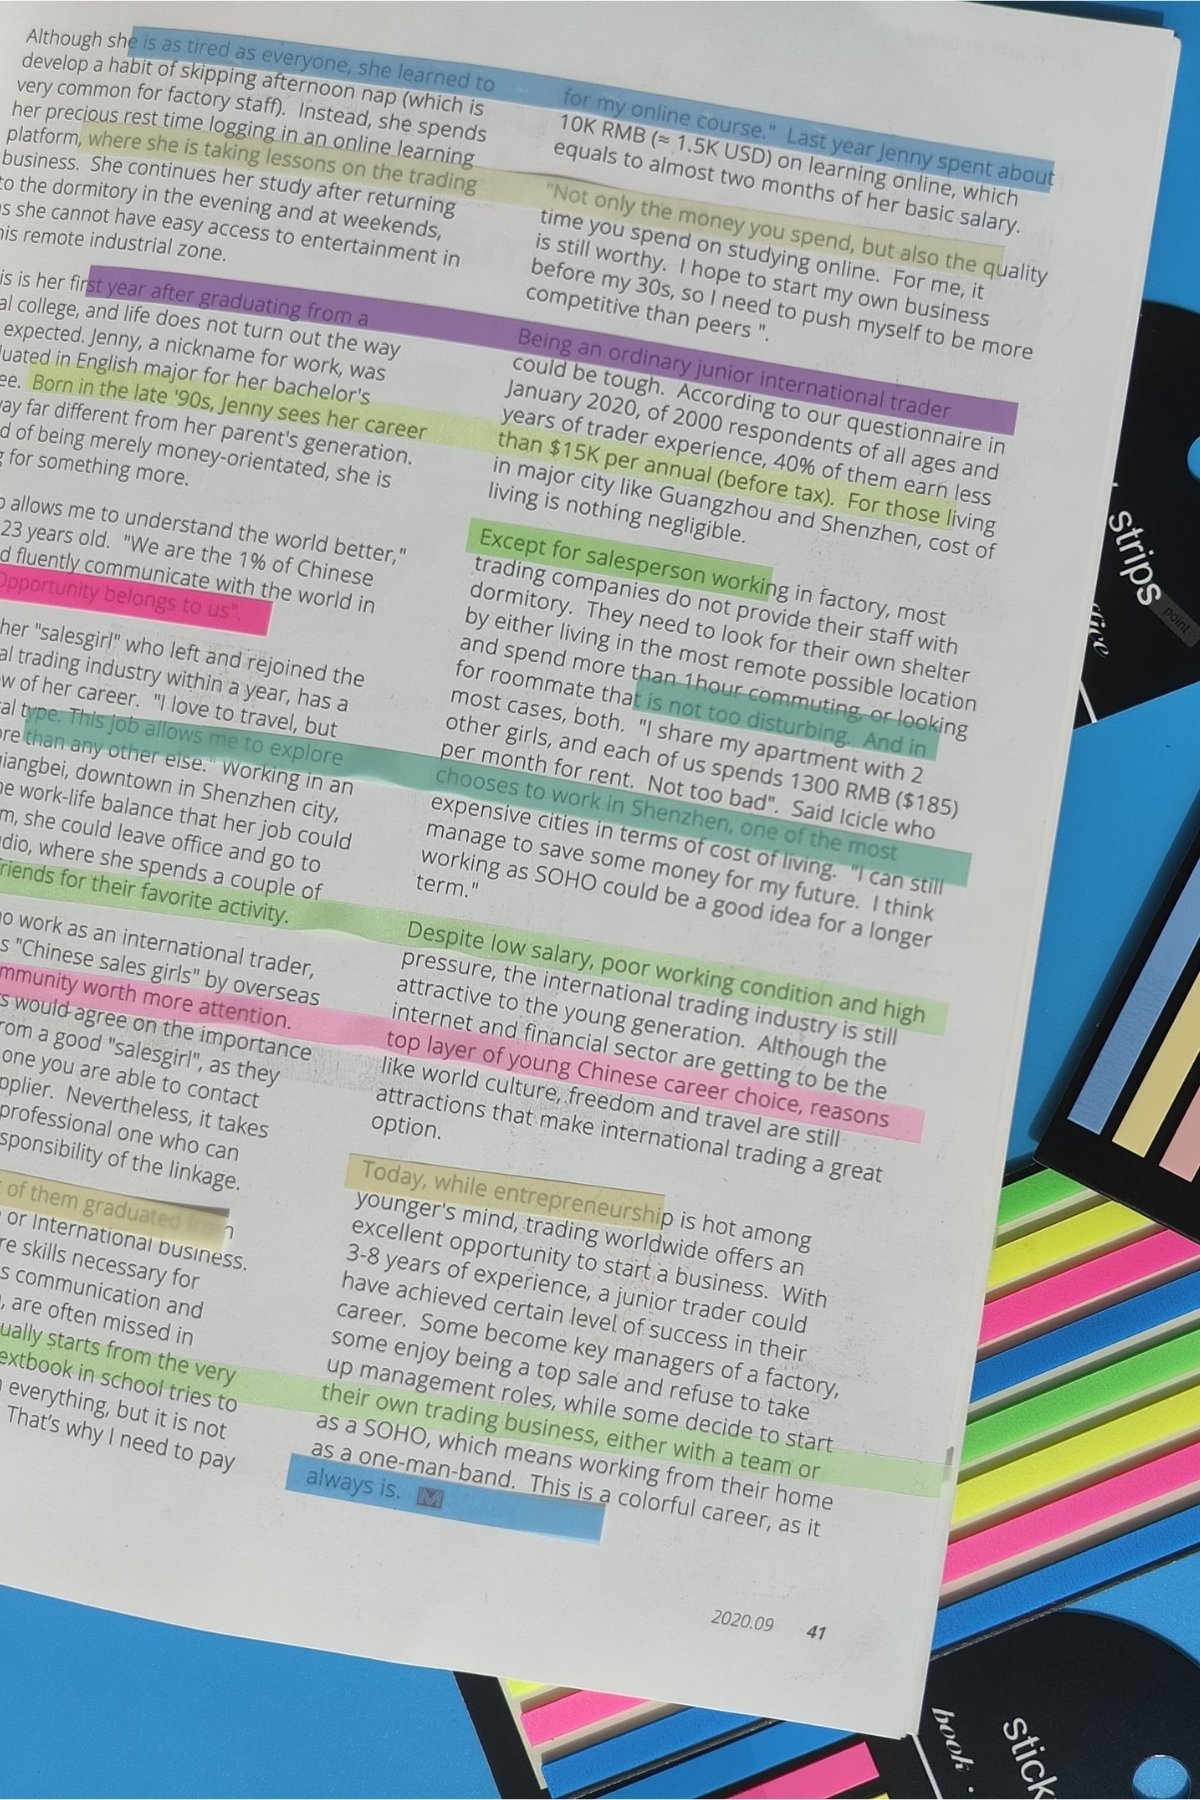 Although she is as tired as everyone, she learned to
develop a habit of skipping afternoon nap (which is
very common for factory staff). Instead, she spends
her precious rest time logging in an online learning
platform, where she is taking lessons on the trading
business. She continues her study after returning
to the dormitory in the evening and at weekends,
as she cannot have easy access to entertainment in
his remote industrial zone.
is is her first year after graduating from a
al college, and life does not turn out the way
expected. Jenny, a nickname for work, was
luated in English major for her bachelor's
ee. Born in the late '90s, Jenny sees her career
ay far different from her parent's generation.
d of being merely money-orientated, she is
g for something more.
b allows me to understand the world better,"
23 years old. "We are the 1% of Chinese
d fluently communicate with the world in
Opportunity belongs to us".
her "salesgirl" who left and rejoined the
al trading industry within a year, has a
w of her career. "I love to travel, but
al type. This job allows me to explore
ore than any other else." Working in an
iangbei, downtown in Shenzhen city,
he work-life balance that her job could
m, she could leave office and go to
udio, where she spends a couple of
friends for their favorite activity.
o work as an international trader,
s "Chinese sales girls" by overseas
mmunity worth more attention.
s would agree on the importance
rom a good "salesgirl", as they
one you are able to contact
pplier. Nevertheless, it takes
professional one who can
sponsibility of the linkage.
of them graduated
or International business.
re skills necessary for
s communication and
, are often missed in
ually starts from the very
extbook in school tries to
everything, but it is not
That's why I need to pay
for my online course." Last year Jenny spent about
10K RMB (≈ 1.5K USD) on learning online, which
equals to almost two months of her basic salary.
"Not only the money you spend, but also the quality
time you spend on studying online. For me, it
is still worthy. I hope to start my own business
before my 30s, so I need to push myself to be more
competitive than peers ".
Being an ordinary junior international trader
could be tough. According to our questionnaire in
January 2020, of 2000 respondents of all ages and
years of trader experience, 40% of them earn less
than $15K per annual (before tax). For those living
in major city like Guangzhou and Shenzhen, cost of
living is nothing negligible.
Except for salesperson working in factory, most
trading companies do not provide their staff with
dormitory. They need to look for their own shelter
by either living in the most remote possible location
and spend more than 1hour commuting, or looking
for roommate that is not too disturbing. And in
most cases, both. "I share my apartment with 2
other girls, and each of us spends 1300 RMB ($185)
per month for rent. Not too bad". Said Icicle who
chooses to work in Shenzhen, one of the most
expensive cities in terms of cost of living. "I can still
manage to save some money for my future. I think
working as SOHO could be a good idea for a longer
term."
Despite low salary, poor working condition and high
pressure, the international trading industry is still
attractive to the young generation. Although the
internet and financial sector are getting to be the
top layer of young Chinese career choice, reasons
like world culture, freedom and travel are still
attractions that make international trading a great
option.
Today, while entrepreneurship is hot among
younger's mind, trading worldwide offers an
excellent opportunity to start a business. With
3-8 years of experience, a junior trader could
have achieved certain level of success in their
career. Some become key managers of a factory,
some enjoy being a top sale and refuse to take
up management roles, while some decide to start
their own trading business, either with a team or
as a SOHO, which means working from their home
as a one-man-band. This is a colorful career, as it
always is. M
2020.09 41
strips
point
book
stick